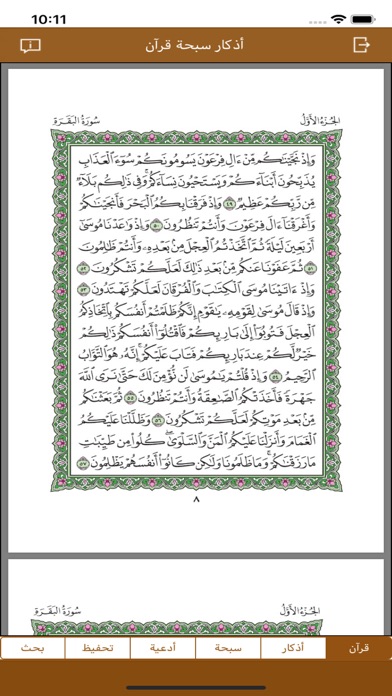 10:11
أذكار سبحة قرآن
سُورَةُ البَقَرَةِ الجُزْءُ الأَوَّلُ
وَإِذْ نَجَّيْنَٰكُم مِّنْ ءَالِ فِرْعَوْنَ يَسُومُونَكُمْ سُوٓءَ ٱلْعَذَابِ
يُذَبِّحُونَ أَبْنَآءَكُمْ وَيَسْتَحْيُونَ نِسَآءَكُمْ وَفِى ذَٰلِكُم بَلَآءٌ
مِّن رَّبِّكُمْ عَظِيمٌ ٤٩ وَإِذْ فَرَقْنَا بِكُمُ ٱلْبَحْرَ فَأَنجَيْنَٰكُمْ
وَأَغْرَقْنَآ ءَالَ فِرْعَوْنَ وَأَنتُمْ تَنظُرُونَ ٥٠ وَإِذْ وَٰعَدْنَا مُوسَىٰٓ
أَرْبَعِينَ لَيْلَةً ثُمَّ ٱتَّخَذْتُمُ ٱلْعِجْلَ مِنۢ بَعْدِهِۦ وَأَنتُمْ ظَٰلِمُونَ
٥١ ثُمَّ عَفَوْنَا عَنكُم مِّنۢ بَعْدِ ذَٰلِكَ لَعَلَّكُمْ تَشْكُرُونَ ٥٢
وَإِذْ ءَاتَيْنَا مُوسَى ٱلْكِتَٰبَ وَٱلْفُرْقَانَ لَعَلَّكُمْ تَهْتَدُونَ ٥٣
وَإِذْ قَالَ مُوسَىٰ لِقَوْمِهِۦ يَٰقَوْمِ إِنَّكُمْ ظَلَمْتُمْ أَنفُسَكُم بِٱتِّخَاذِكُمُ
ٱلْعِجْلَ فَتُوبُوٓا۟ إِلَىٰ بَارِئِكُمْ فَٱقْتُلُوٓا۟ أَنفُسَكُمْ ذَٰلِكُمْ
خَيْرٌ لَّكُمْ عِندَ بَارِئِكُمْ فَتَابَ عَلَيْكُمْ إِنَّهُۥ هُوَ ٱلتَّوَّابُ
ٱلرَّحِيمُ ٥٤ وَإِذْ قُلْتُمْ يَٰمُوسَىٰ لَن نُّؤْمِنَ لَكَ حَتَّىٰ نَرَى ٱللَّهَ
جَهْرَةً فَأَخَذَتْكُمُ ٱلصَّٰعِقَةُ وَأَنتُمْ تَنظُرُونَ ٥٥ ثُمَّ بَعَثْنَٰكُم
مِّنۢ بَعْدِ مَوْتِكُمْ لَعَلَّكُمْ تَشْكُرُونَ ٥٦ وَظَلَّلْنَا عَلَيْكُمُ
ٱلْغَمَامَ وَأَنزَلْنَا عَلَيْكُمُ ٱلْمَنَّ وَٱلسَّلْوَىٰ كُلُوا۟ مِن طَيِّبَٰتِ
مَا رَزَقْنَٰكُمْ وَمَا ظَلَمُونَا وَلَٰكِن كَانُوٓا۟ أَنفُسَهُمْ يَظْلِمُونَ ٥٧
٨
سُورَةُ البَقَرَةِ الجُزْءُ الأَوَّلُ
قرآن أذكار سبحة أدعية تحفيظ بحث